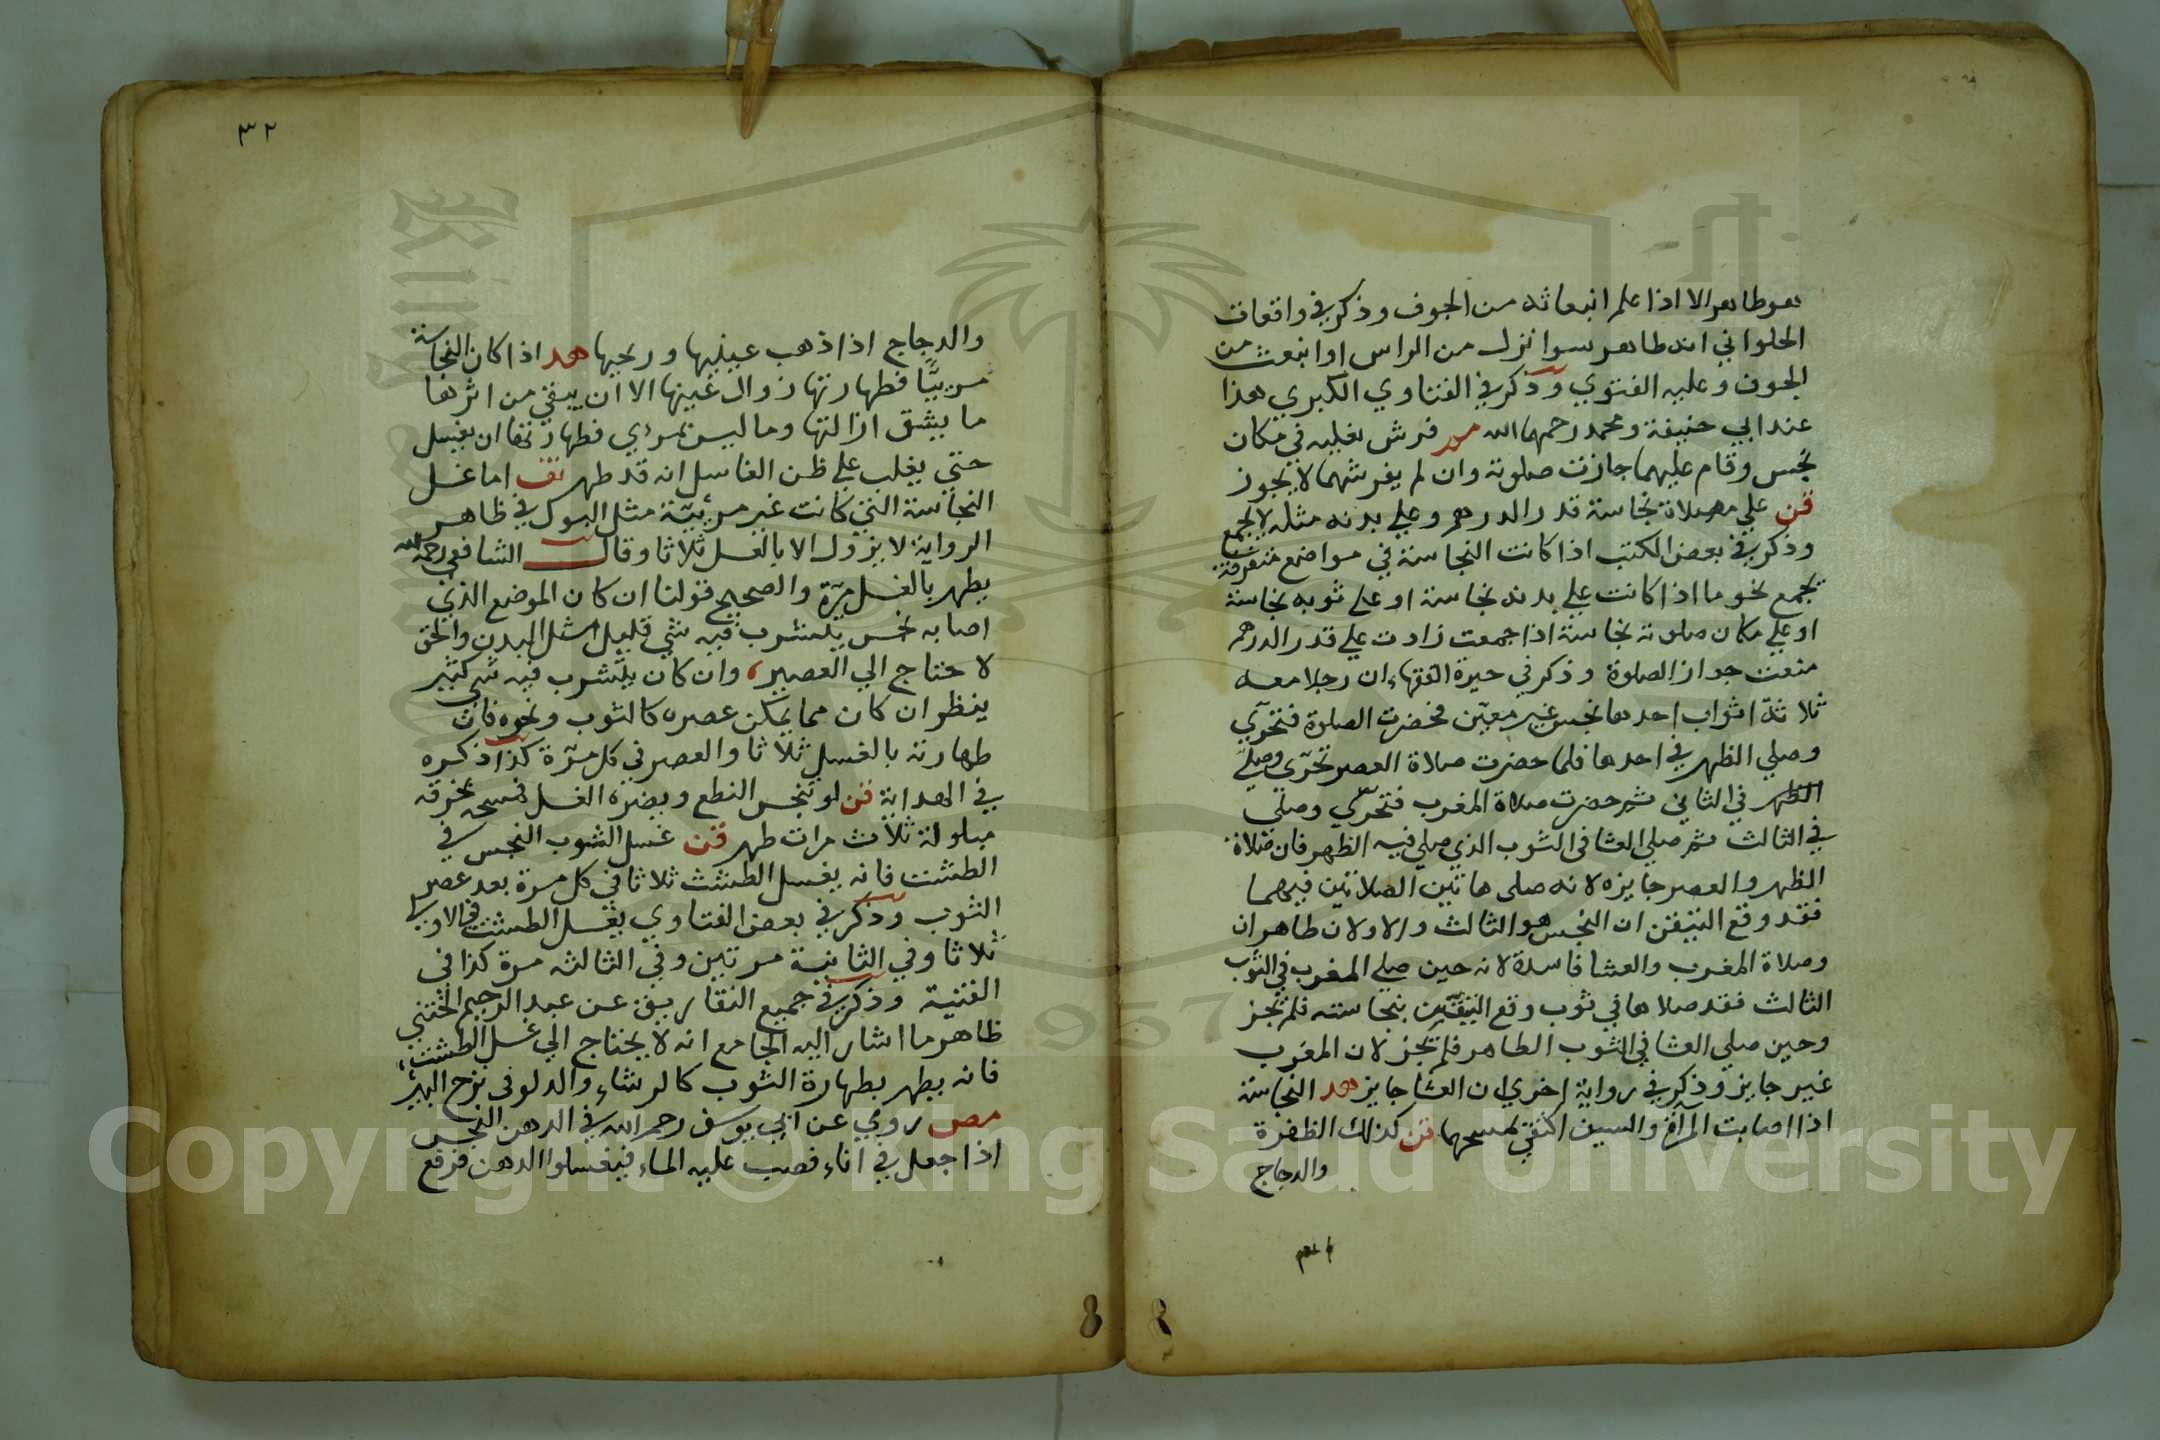 هو طاهر الا اذا علم انبعاثه من الجوف وذكر في واقعات
الحلواني انه طاهر سوا نزل من الراس او انبعث من
الجوف وعليه الفتوي وذكر في الفتاوي الكبري هذا
عند ابي حنيفة ومحمد رحمهما الله فرش نعليه في مكان
نجس وقام عليهما جازت صلوته وان لم يفرشهما لا يجوز
قن علي مصلاه نجاسة قدر الدرهم وعلي بدنه مثله لا يجمع
وذكر في بعض الكتب اذا كانت النجاسة في مواضع متفرقة
تجمع نحو ما اذا كانت علي بدنه نجاسة او علي ثوبه نجاسة
او علي مكان صلوته نجاسة اذا جمعت زادت علي قدر الدرهم
منعت جواز الصلوة وذكر في حيرة الفقهاء ان رجلا معه
ثلاثة اثواب احدها نجس غير معين فحضرت الصلوة فتحري
وصلي الظهر في احدها فلما حضرت صلاة العصر تحري وصلي
الظهر في الثاني ثم حضرت صلاة المغرب فتحري وصلي
في الثالث ثم صلي العشا في الثوب الذي صلي فيه الظهر فان صلاة
الظهر والعصر جايزه لانه صلي هاتين الصلاتين فيهما
فقد وقع التيقن ان النجس هو الثالث والاولان طاهران
وصلاة المغرب والعشا فاسدة لانه حين صلي المغرب في الثوب
الثالث فقد صلاها في ثوب وقع التيقن بنجاسته فلم تجز
وحين صلي العشا في الثوب الطاهر فلم تجز لان المغرب
غير جايز وذكر في رواية اخري ان العشا جايز هد النجاسة
اذا اصابت المرآة والسيف اكتفي بمسحهما قن كذلك الظفرة
والدجاج
٣٢
والدجاج اذا ذهب عينيها وريحها هد اذا كان النجاسة
مريبا فطهارتها زوال عينها الا ان يبقي من اثرها
ما يشق ازالتها وما ليس بمرءي فطهارتها ان يغسل
حتي يغلب علي ظن الغاسل انه قد طهر تف اما غسل
النجاسة التي كانت غير مريية مثل البول في ظاهر
الرواية لا يزول الا بالغسل ثلاثا وقال الشافعي رحمه الله
يطهر بالغسل مرة والصحيح قولنا ان كان الموضع الذي
اصابه نجس يتشرب فيه شي قليل مثل البدن والخف
لا حتاج الي العصير وان كان يتشرب فيه شي كثير
ينظر ان كان مما يمكن عصره كالثوب ونحوه فان
طهارته بالغسل ثلاثا والعصر في كل مرة كذا ذكره
في الهداية قن لو تنجس النطع ويضره الغسل فمسحه بخرقه
مبلولة ثلاث مرات طهر قن غسل الثوب النجس في
الطشت فانه يغسل الطشت ثلاثا في كل مرة بعد عصر
الثوب وذكر في بعض الفتاوي يغسل الطشت في الاولي
ثلاثا وفي الثانية مرتين وفي الثالثه مرة كذا في
القنية وذكر في جميع التفاريق عن عبد الرحيم الختني
ظاهر ما اشار اليه الجامع انه لا يحتاج الي غسل الطشت
فانه يطهر بطهارة الثوب كالرشاء والدلو في نزح البير
مص روي عن ابي يوسف رحمه الله في الدهن النجس
اذا جعل في اناء فصب عليه الماء فيغسلوا الدهن فرفع
Copyright © King Saud University
1957